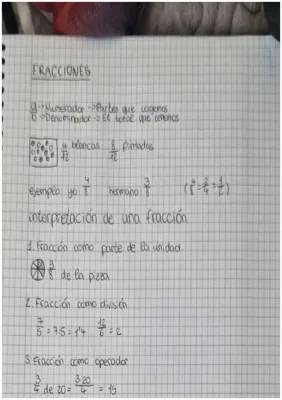 FRACCIONES
a → Numerador → Partes que cogemos
b → Denominador → El total que tenemos
4/12 blancas 8/12 pintadas
ejemplo: yo 4/8 hermano 3/8 (4/8 = 2/4 = 1/2)
interpretación de una fracción
1. Fracción como parte de la unidad.
3/8 de la pizza
2. Fracción como división
7/5 = 7:5 = 1'4 12/6 = 2
3. Fracción como operador
3/4 de 20 = 3·20/4 = 15